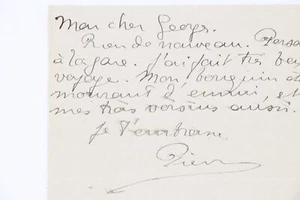 Mon cher Georges.
Rien de nouveau. Person
à la gare. J'ai fait très bon
voyage. Mon bouquin est
mourant d'ennui, et
mes très voisins aussi.
Je t'embrasse
Pierre